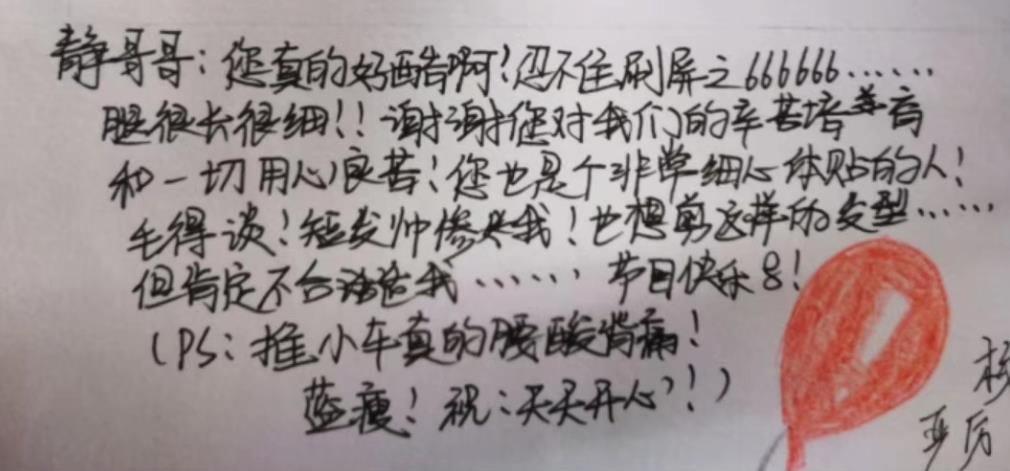 静哥哥：您真的好酷啊！忍不住刷屏之666666……
腿很长很细！！谢谢您对我们的辛苦培养育
和一切用心良苦！您也是个非常细心体贴的人！
毛得谈！短发帅惨了我！也想剪这样的发型……
但肯定不合适我…… 节日快乐8！
（PS：推小车真的腰酸背痛！
蓝瘦！祝：天天开心！）